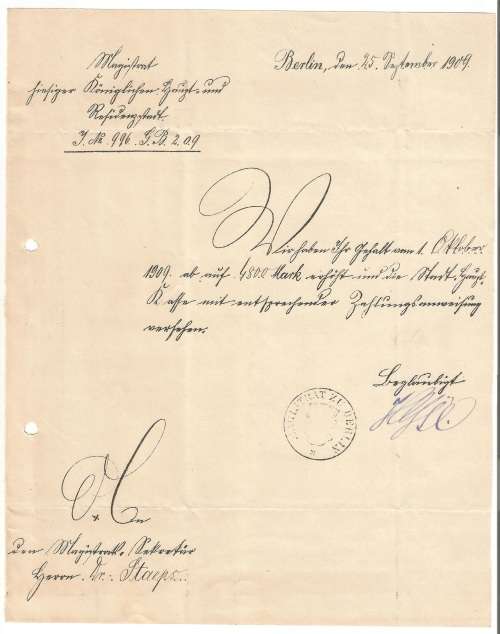 Magistrat
hiesiger Königlichen Haupt- und
Residenzstadt
J. No. 996. G.B. 2. 09
Berlin, den 25. September 1909.
Wir haben Ihr Gehalt vom 1. Oktober
1909. ab auf 4800 Mark erhöht und die Stadt-Haupt-
Kasse mit entsprechender Zahlungsanweisung
versehen.
Beglaubigt
MAGISTRAT ZU BERLIN
An
den Magistrats-Sekretär
Herrn Dr.